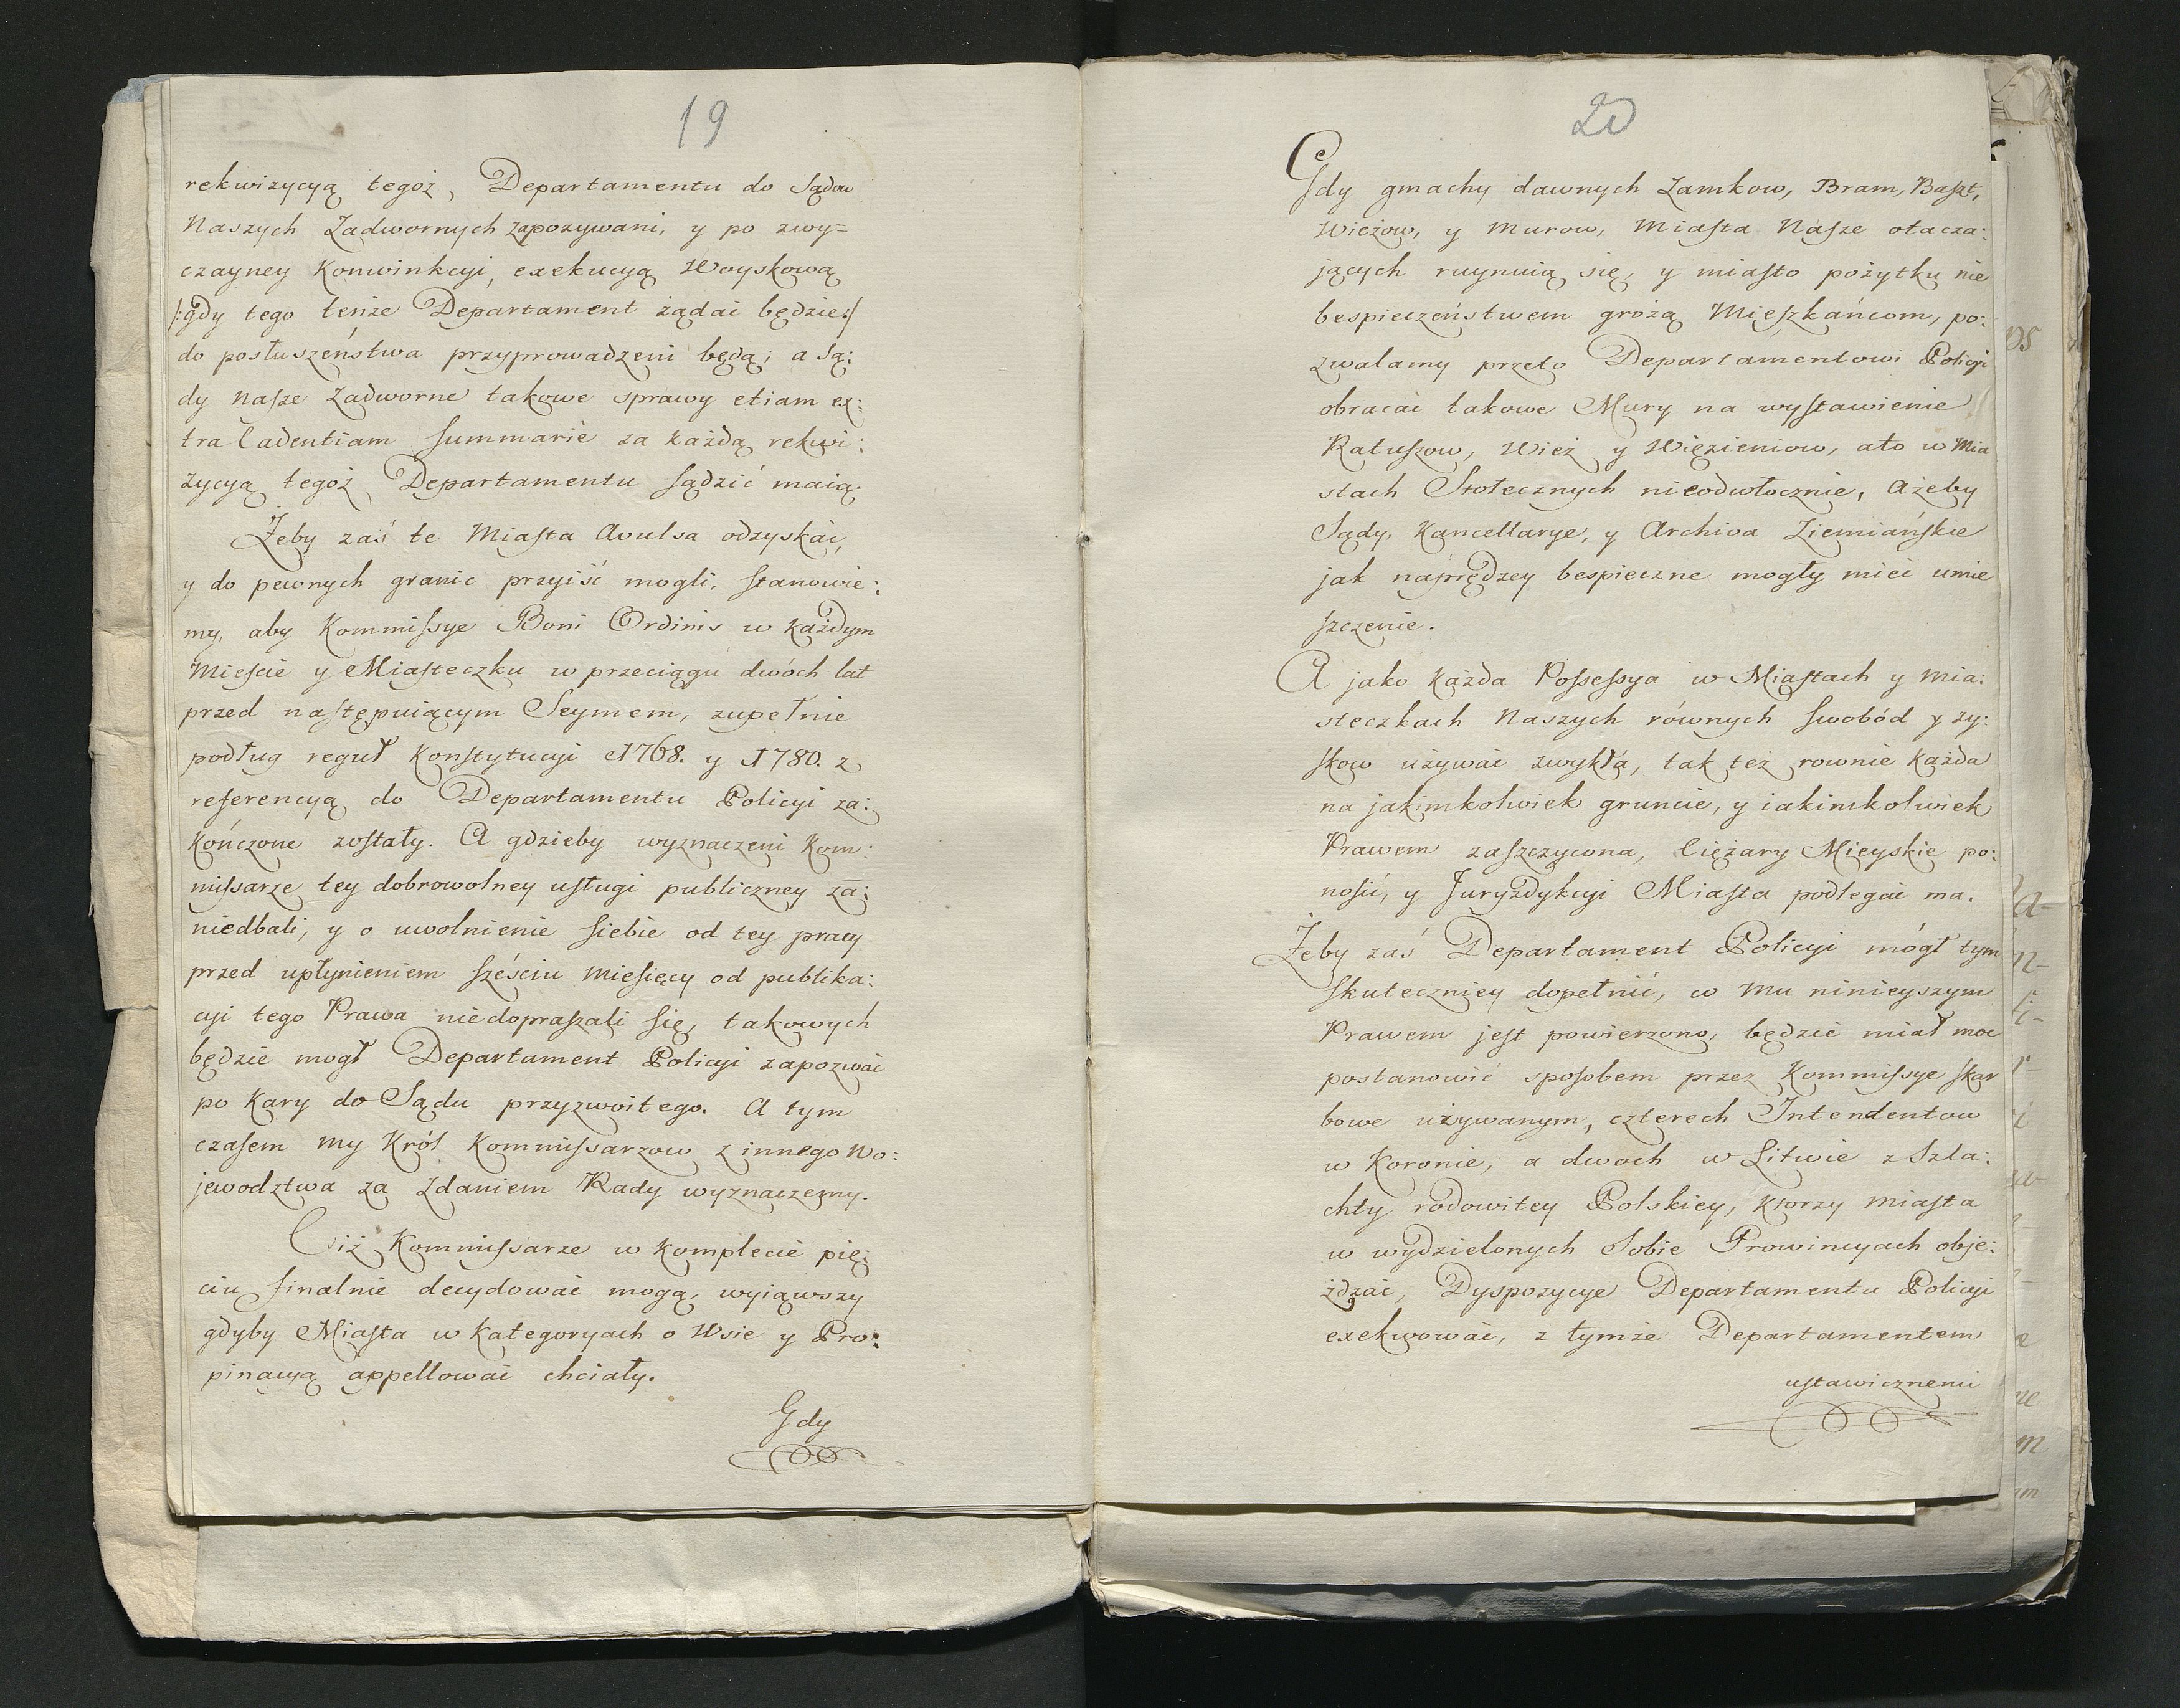 19
rekwizycyą tegoż, Departamentu do Sądow
Naszych Zadwornych zapozywani, y po zwy=
czayney Konwinkcyi, exekucyą Woyskową
/:gdy tego tenże Departament żądać będzie:/
do posłuszeństwa przyprowadzeni będą; a Są:
dy nasze Zadworne takowe sprawy etiam ex:
tra Cadentiam summarie za każdą rekwi:
zycyą tegoż Departamentu sądzić maią.
Żeby zaś te Miasta Avulsa odzyskać,
y do pewnych granic przyiść mogli, stanowie:
my, aby Kommissye Boni Ordinis w każdym
Mieście y Miasteczku w przeciągu dwóch lat
przed następuiącym Seymem, zupełnie
podług reguł Konstytucyi 1768. y 1780. z
referencyą do Departamentu Policyi za:
kończone zostały. A gdzieby wyznaczeni Kom:
missarze tey dobrowolney usługi publiczney za:
niedbali, y o uwolnienie siebie od tey pracy
przed upłynieniem sześciu miesięcy od publika:
cyi tego Prawa niedopraszali się, takowych
będzie mogł Departament Policyi zapozwać
po kary do Sądu przyzwoitego. A tym
czasem my Król Kommissarzow z innego Wo:
jewodztwa za zdaniem Rady wyznaczemy.
Ciż Kommissarze w komplecie pię:
ciu finalnie decydować mogą, wyiąwszy
gdyby Miasta w kategoryach o Wsie y Pro:
pinacyą appellować chciały.
Gdy
20
Gdy gmachy dawnych Zamkow, Bram, Baszt,
Wieżow, y Murow, Miasta Nasze otacza:
jących ruynuią się, y miasto pożytku nie
bespieczeństwem grożą Mieszkańcom, po:
zwalamy przeto Departamentowi Policyi
obracać takowe Mury na wystawienie
Ratuszow, Wież y Więzieniow, ato w Mia
stach Stołecznych nieodwłocznie, ażeby
Sądy, Kancellarye, y Archiva Ziemiańskie
jak náprędzey bespieczne mogły mieć umie
szczenie.
A jako każda Possessya w Miastach y Mia:
steczkach Naszych równych swobód y zy:
skow używać zwykła, tak też rownie każda
na jakimkolwiek gruncie, y iakimkolwiek
Prawem zaszczycona, Ciężary Mieyskie po:
nosić, y Juryzdykcyi Miasta podlegać ma.
Żeby zaś Departament Policyi mógł tym
skuteczniey dopełnić, co mu ninieyszym
Prawem jest powierzono, będzie miał moc
postanowić sposobem przez Kommissye skar
bowe używanym, czterech Intendentow
w Koronie, a dwoch w Litwie z Szla:
chty rodowitey Polskiey, ktorzy miasta
w wydzielonych sobie Prowincyach obje:
żdzać, Dyspozycye Departamentu Policyi
exekwować, z tymże Departamentem
ustawicznemi